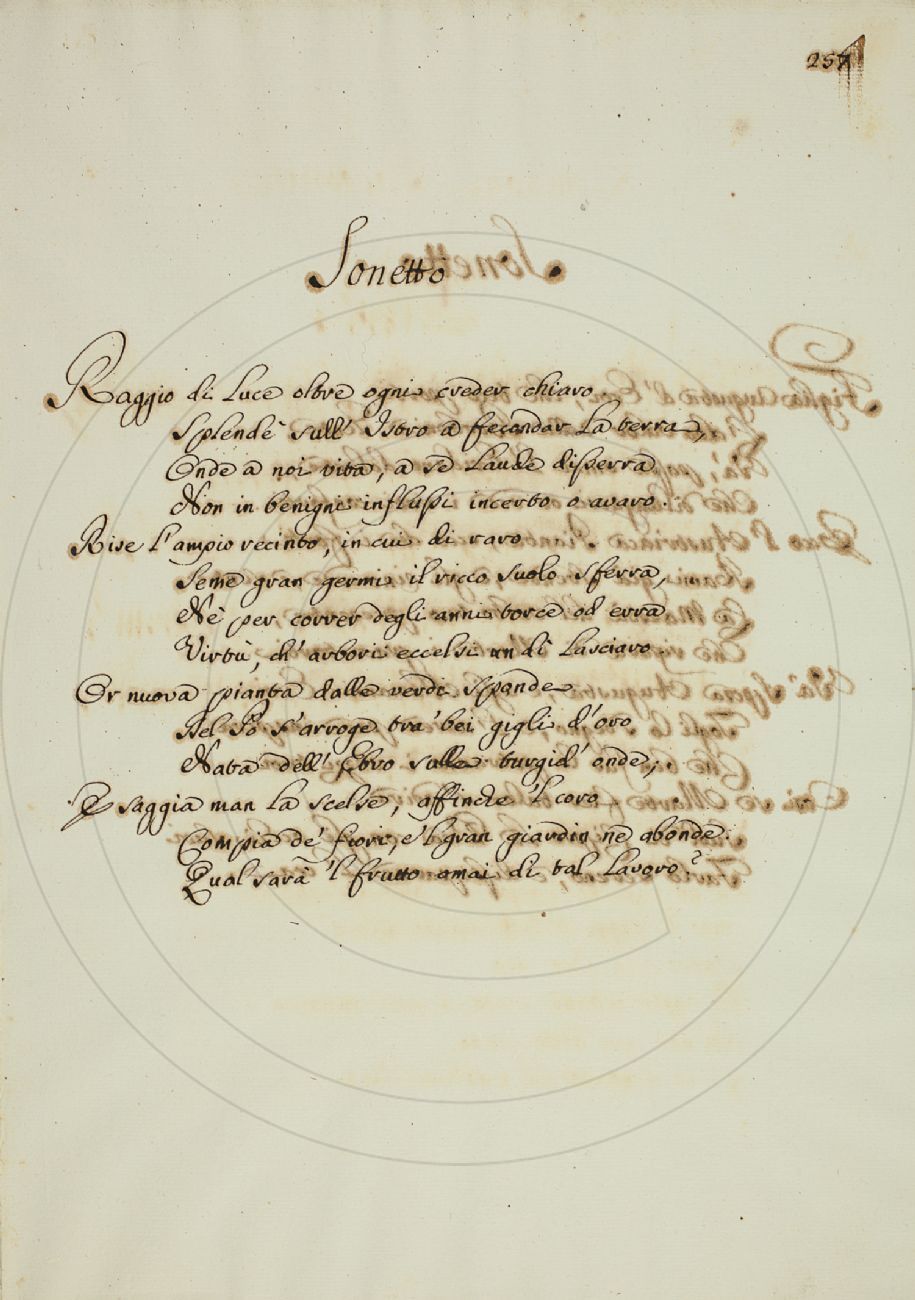 257
Sonetto
Raggio di Luce oltre ogni creder chiaro
Splende sull' Istro a fecondar La terra,
Onde a noi vita, a se Laude disserra
Non in benigni influssi incerto o avaro.
Rise l'ampio recinto, in cui di raro
Seme gran germi il ricco suolo sferra,
Nè per correr degli anni torce od erra
Virtù, ch' arbori eccelsi un dì Lasciaro.
Or nuova pianta dalle verdi sponde
Del Pò s'arroge tra' bei gigli d'oro
Nata dell' Ebro sulle turgid' onde;
E saggia man La scelse, affinche 'l coro
Compia de' fiori, e 'l gran giardin ne abonde.
Qual sarà 'l frutto omai di tal Lavoro?